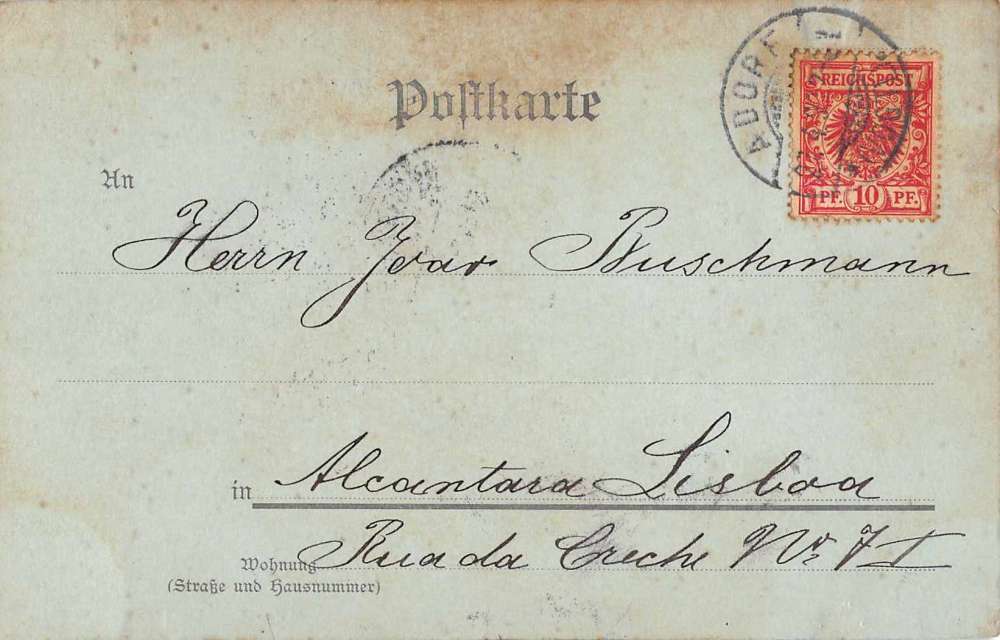 Postkarte
ADORF
REICHSPOST
PF. 10 PF.
An
Herrn Joao Buschmann
in Alcantara Lisboa
Rua da Creche No. 7 I
Wohnung
(Straße und Hausnummer)